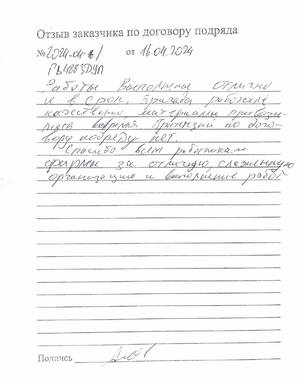 Отзыв заказчика по договору подряда
№ 2024-04-6/ от 16.04.2024
Работы выполнены отлично
и в срок. Бригада работала
качественно материалы привози-
лись вовремя. Претензий по дого-
вору подряда нет.
Спасибо всем работникам
фирмы за отличную слаженную
организацию и выполнение работ
Подпись